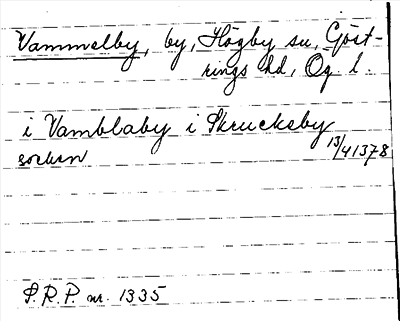 Vammelby, by, Högby sn, Göst-
rings hd, Ög. l.
i Vamblaby i Skrucksby
socken 13/4 1378
S.R.P. nr. 1335